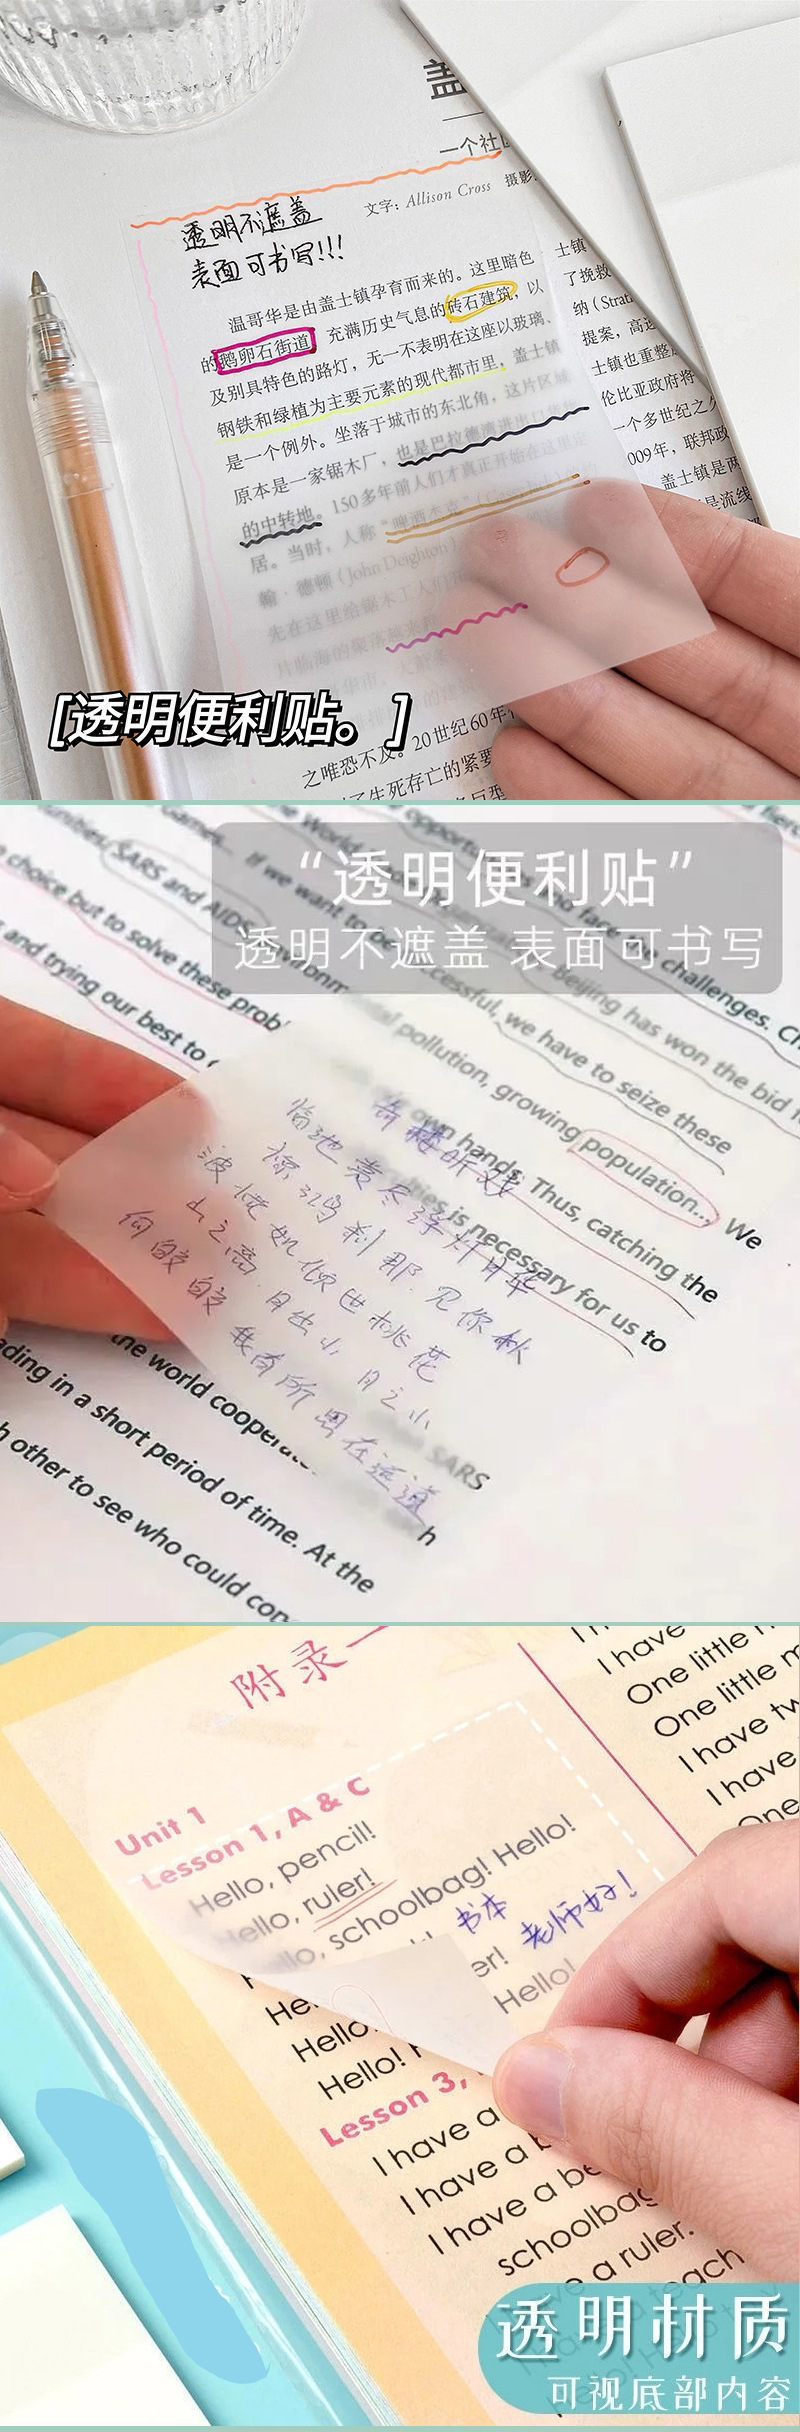 盖
一个社
文字：Allison Cross 摄影
透明不遮盖
表面可书写!!!
温哥华是由盖士镇孕育而来的。这里暗色
的鹅卵石街道，充满历史气息的砖石建筑，以
及别具特色的路灯，无一不表明在这座以玻璃、
钢铁和绿植为主要元素的现代都市里，盖士镇
是一个例外。坐落于城市的东北角，这片区域
原本是一家锯木厂，也是巴拉德湾进出口货物
的中转地。150多年前人们才真正开始在这里定
居。当时，人称“啤酒杰克”
翰·德顿（John Deighton）
先在这里给锯木工人们
片临海的聚落越来
之唯恐不及。20世纪60年
了生死存亡的紧要
士镇
了挽救
纳（Strat
提案，高速
士镇也重整
伦比亚政府将
一个多世纪之久
009年，联邦政
盖士镇是两
是流线
[透明便利贴。]
“透明便利贴”
透明不遮盖 表面可书写
Games. If we want to be successful, we have to seize these
SARS and AIDS, environmental pollution, growing population... We
choice but to solve these prob
own hands. Thus, catching the
and trying our best to
is necessary for us to
challenges. Ch
Beijing has won the bid f
高楼听戏
临池赏尽绛灯月华
惊鸿刹那 见你秋
波恍如倾世桃花
山之高 月出小 月之小
何皎皎 我有所思在远道
the world coopera
SARS
ading in a short period of time. At the
h other to see who could con
h
附录一
Unit 1
Lesson 1, A & C
Hello, pencil!
Hello, ruler!
Hello, schoolbag! Hello!
书本
er! 老师好!
Hello
Hello!
Hello!
Lesson 3,
I have a
I have a b
I have a be
schoolbag
a ruler.
each
I have
One little
One little m
I have tw
I have
One
透明材质
可视底部内容